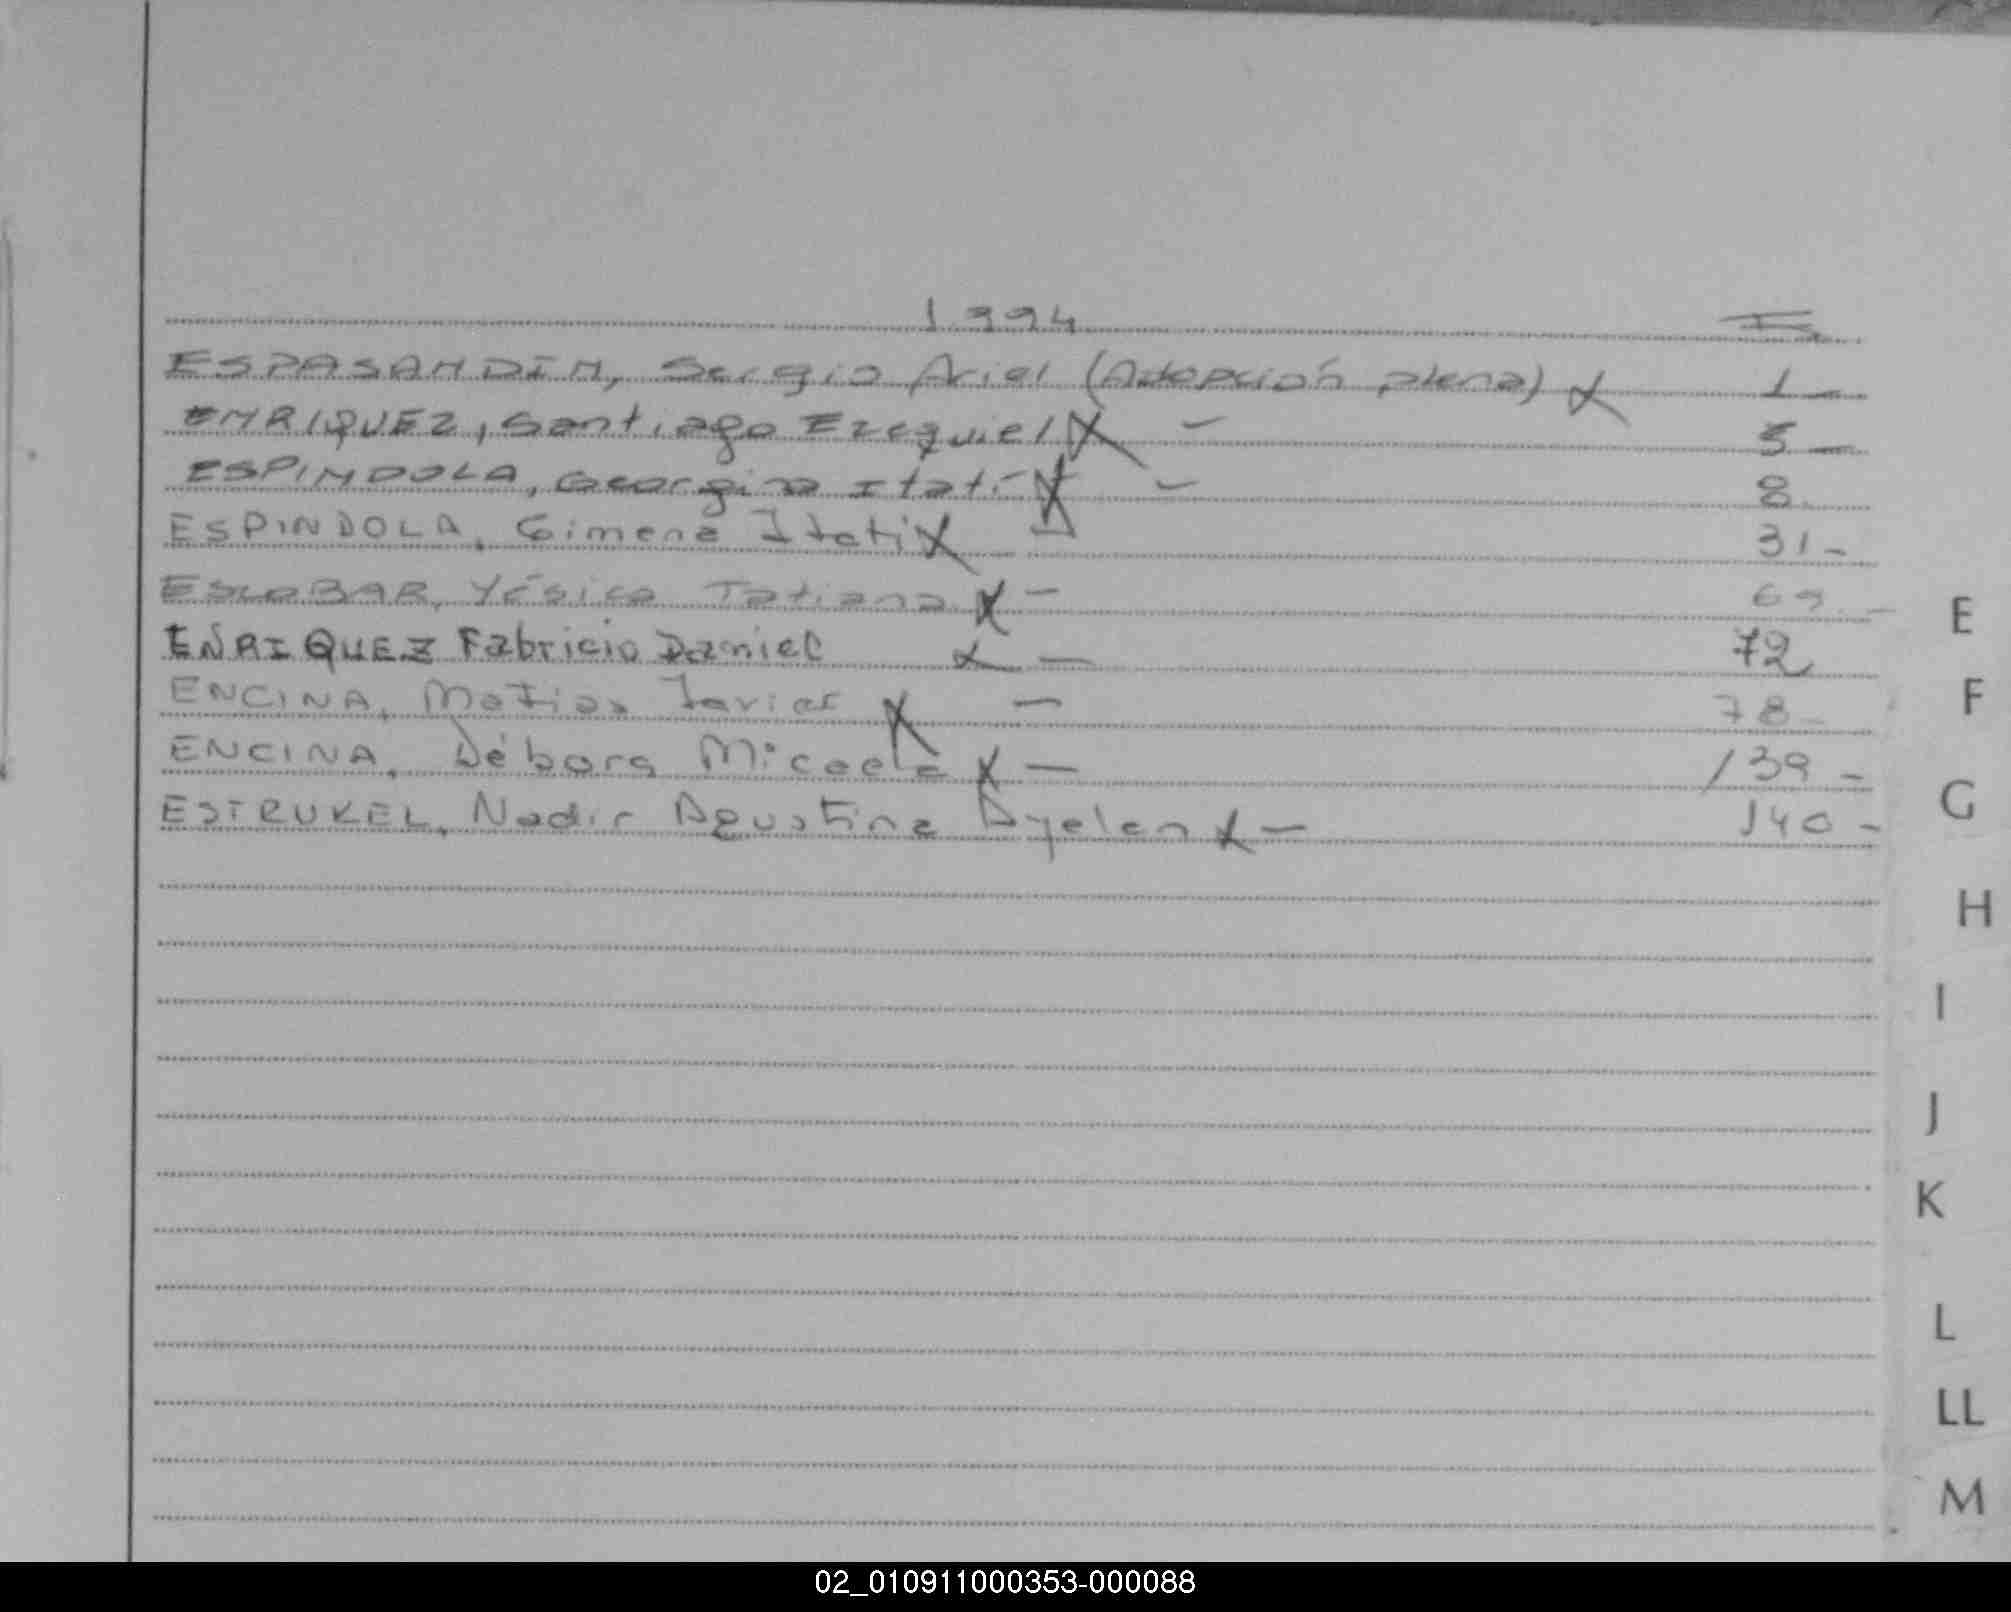 1994 Fº
ESPASANDIN, Sergio Ariel (Adopción plena) X 1 -
ENRIQUEZ, Santiago Ezequiel X - 5 -
ESPINDOLA, Georgina Itatí X - 8
ESPINDOLA, Gimena Itati X 31 -
ESCOBAR, Yésica Tatiana X - 69 -
ENRIQUEZ Fabricio Daniel X - 72
ENCINA, Matias Javier X - 78 -
ENCINA, Débora Micaela X - 139 -
ESTRUKEL, Nadir Agustina Ayelen X - 140 -
E
F
G
H
I
J
K
L
LL
M
02_010911000353-000088